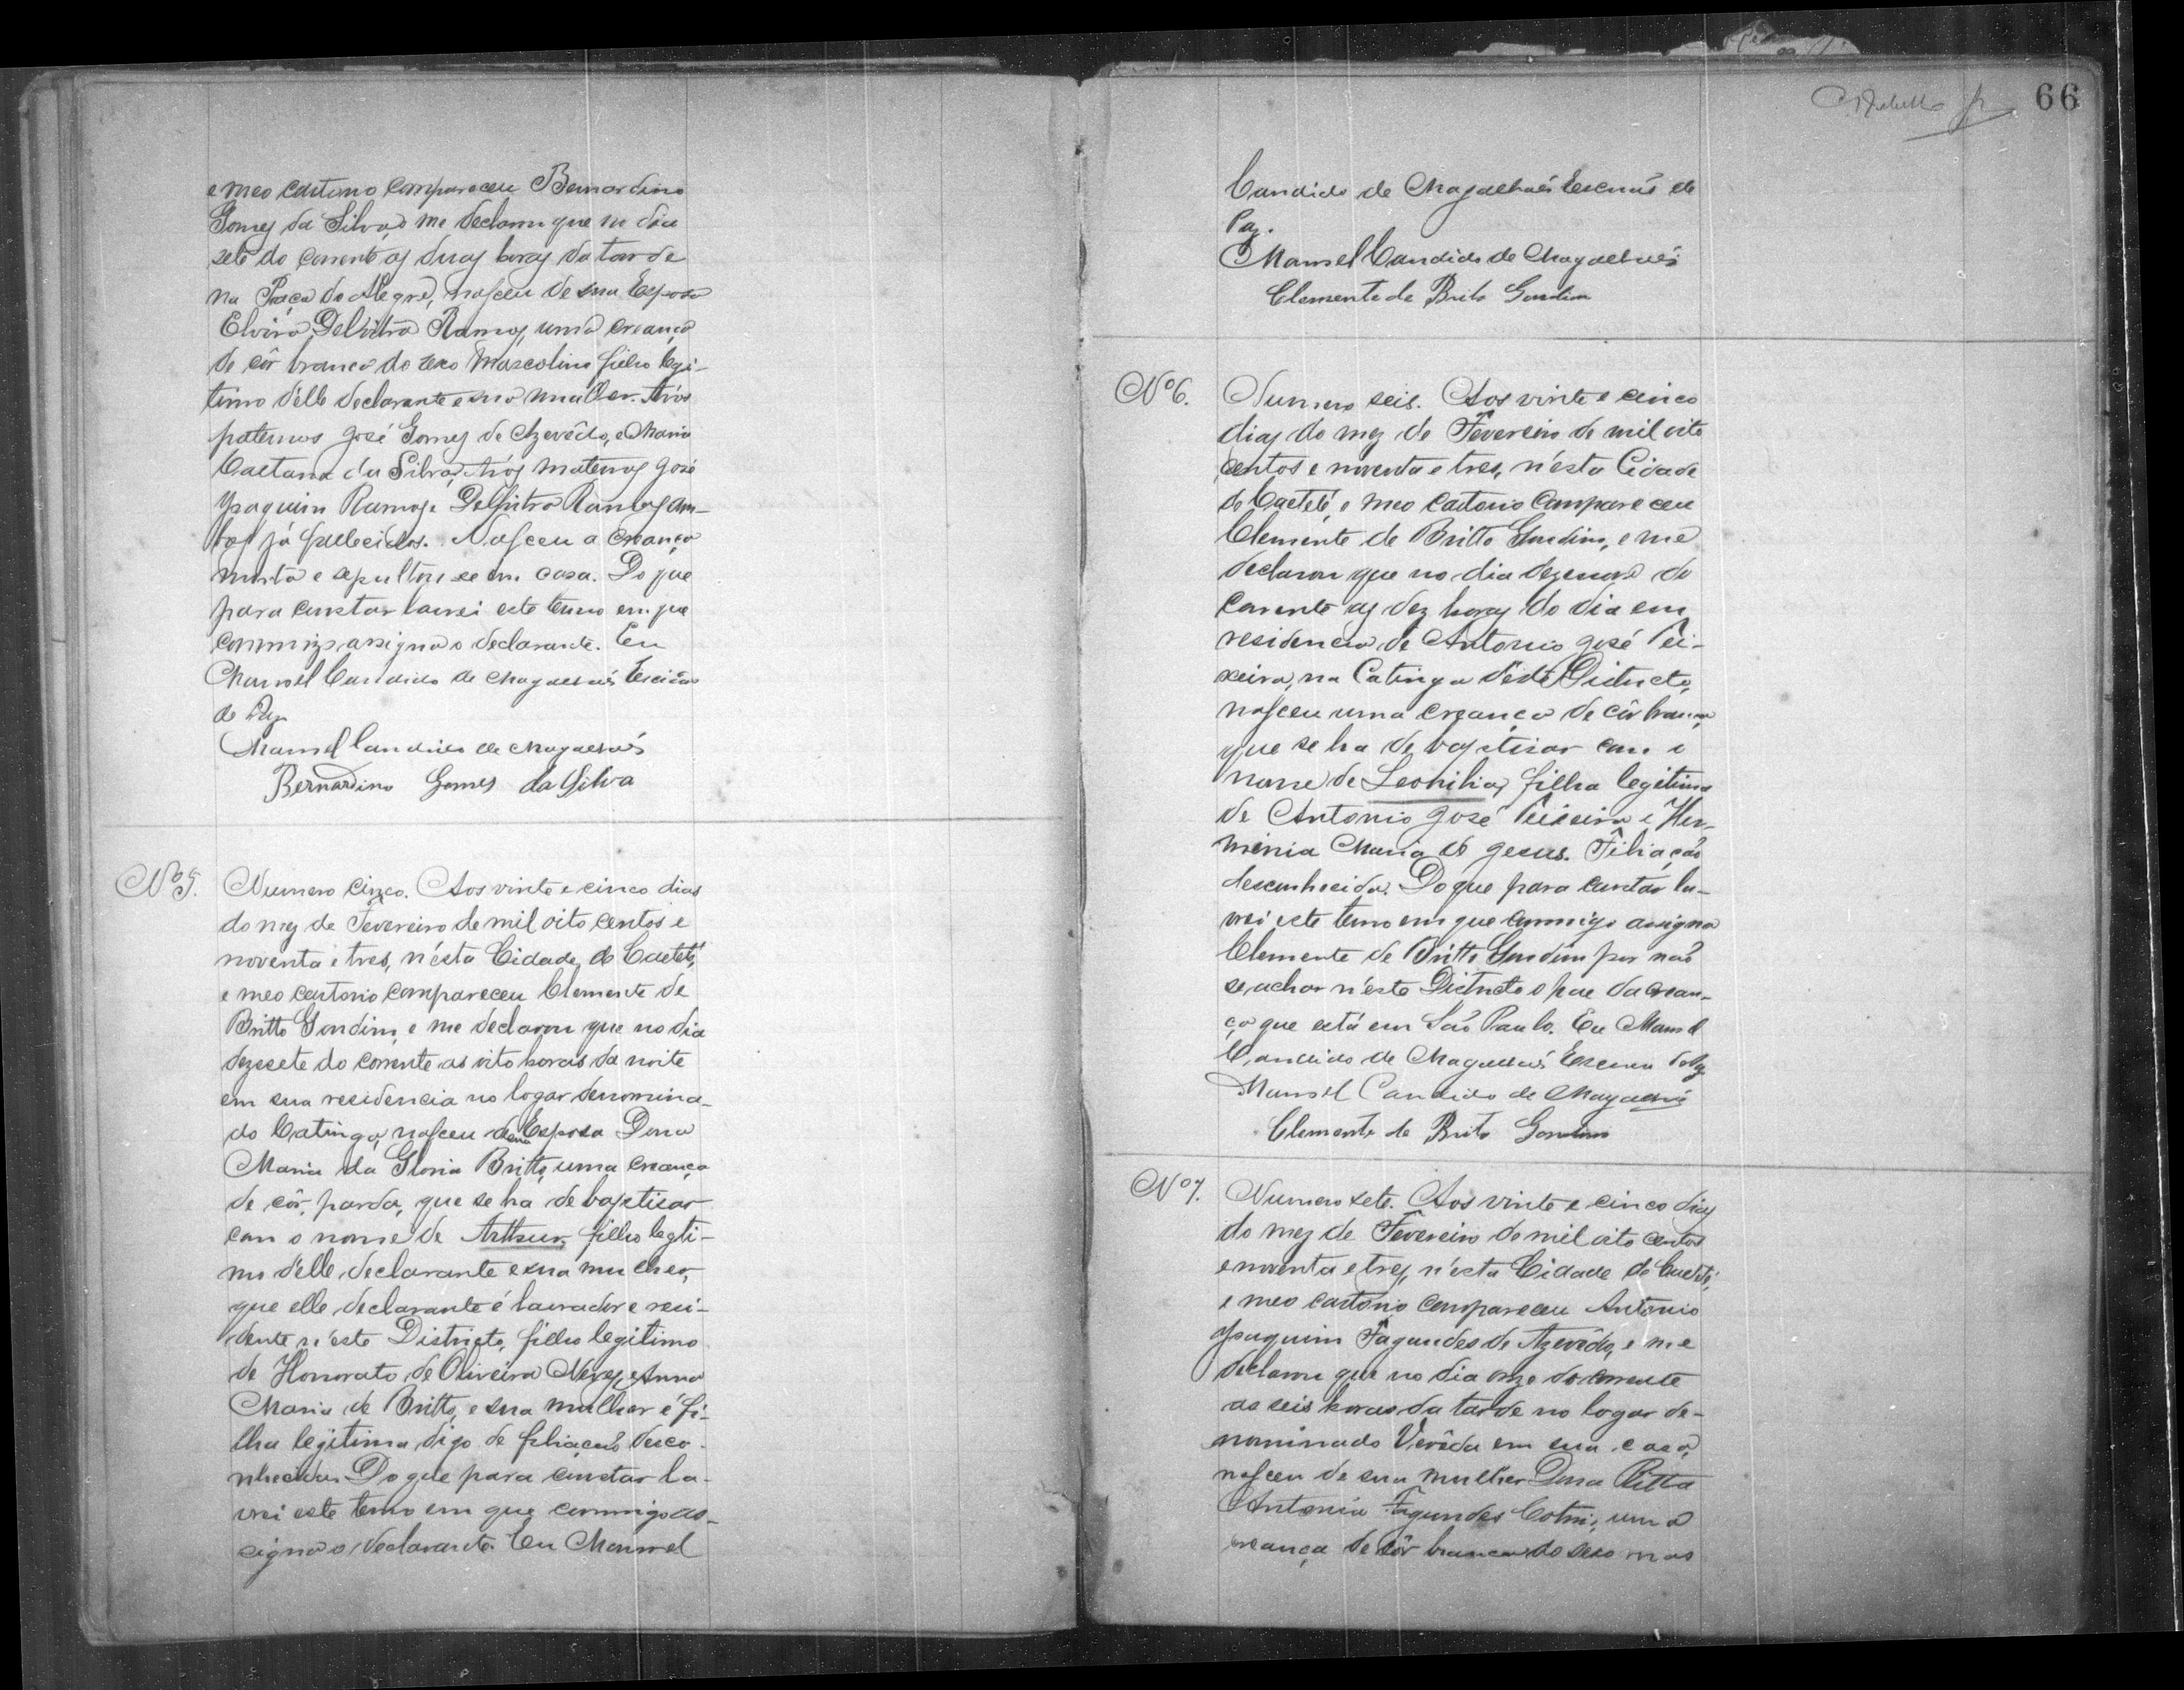 e meo cartorio compareceu Bernardino
Gomes da Silva, e me declarou que no dia
sete do corrente as duas horas da tarde
na Praça do Alegre, nasceu de sua Esposa
Elvira Delfina Ramos, uma creança
de côr branca do sexo Masculino filho legi-
timo d'elle declarante e sua mulher. Avós
paternos José Gomes de Azevêdo, e Maria
Caetana da Silva, Avós maternos José
Joaquim Ramos e Ramos am-
bos já fallecidos. Nasceu a creança
morta e sepultou-se em casa. Do que
para constar lavrei este termo em que
commigo assigna o declarante. Eu
Manoel Candido de Magalhaes Escrivão
de Paz
Manoel Candido de Magalhães
Bernardino Gomes da Silva
Nº 5. Numero cinco. Aos vinte e cinco dias
do mez de Fevereiro de mil oito centos e
noventa e tres, n'esta Cidade de Caeteté,
e meo cartorio compareceu Clemente de
Britto Gondim, e me declarou que no dia
dezesete do corrente as oito horas da noite
em sua residencia no logar denomina-
do Catinga, nasceu de sua Esposa Dona
Maria da Gloria Britto, uma creança
de côr parda, que se ha de baptisar
com o nome de Arthur, filho legiti-
mo d'elle declarante e sua mulher,
que elle declarante é lavrador e resi-
dente n'este Districto, filho legitimo
de Honorato de Oliveira Neves e Anna
Maria de Britto, e sua mulher é fi-
lha legitima digo de filiação desco-
nhecida. Do que para constar la-
vrei este termo em que commigo as-
signa o declarante. Eu Manoel
66
Candido de Magalhaes Escrivão de
Paz.
Manoel Candido de Magalhaes
Clemente de Brito Gondim
Nº 6. Numero seis. Aos vinte e cinco
dias do mez de Fevereiro de mil oito
centos e noventa e tres, n'esta Cidade
de Caeteté, e meo cartorio compareceu
Clemente de Britto Gondim, e me
declarou que no dia dezenove do
corrente as dez horas do dia em
residencia de Antonio José Tei-
xeira, na Catinga d'este Districto,
nasceu uma creança de côr branca,
que se ha de baptisar com o
nome de Leonilia, filha legitima
de Antonio José Teixeira e Her-
minia Maria de Jesus. Filiação
desconhecida. Do que para constar la-
vrei este termo em que commigo assigna
Clemente de Britto Gondim por não
se achar n'este Districto o pae da crean-
ça que está em São Paulo. Eu Manoel
Candido de Magalhaes Escrivão de Paz
Manoel Candido de Magalhaes
Clemente de Brito Gondim
Nº 7. Numero sete. Aos vinte e cinco dias
do mez de Fevereiro de mil oito centos
e noventa e tres, n'esta Cidade de Caeteté,
e meo cartorio compareceu Antonio
Joaquim Fagundes de Azevêdo, e me
declarou que no dia onze do corrente
as seis horas da tarde no logar de-
nominado Verêda em sua casa,
nasceu de sua mulher Dona Ritta
Antonia Fagundes Cotrim, uma
creança de côr branca do sexo mas